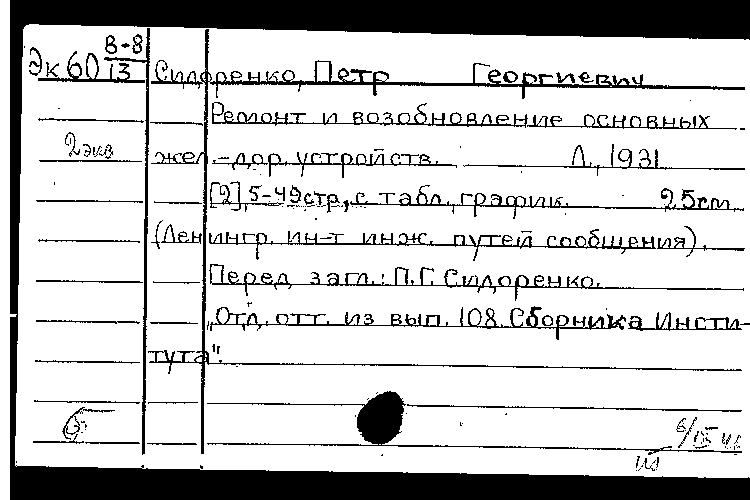 Эк 60 В-8/13 Сидоренко, Петр Георгиевич
Ремонт и возобновление основных
2 экз
жел.-дор. устройств. Л., 1931
[2], 5-49 стр., с табл., график. 25 см
(Ленингр. ин-т инж. путей сообщения).
Перед загл.: П.Г. Сидоренко.
"Отд. отт. из вып. 108 Сборника Инсти-
тута".